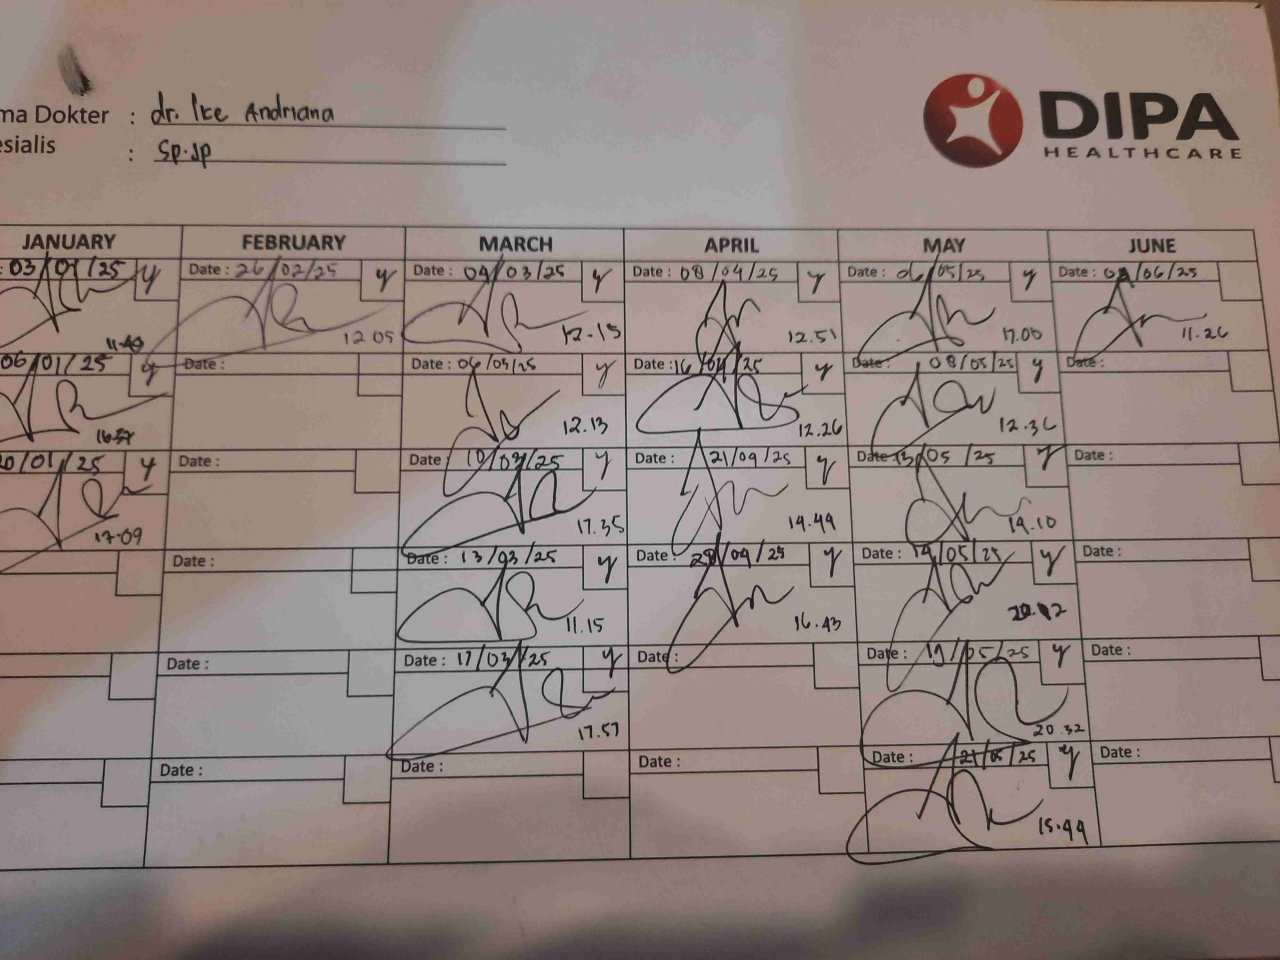 ma Dokter : dr. Ike Andriana
esialis : Sp.Jp
DIPA
HEALTHCARE
JANUARY FEBRUARY MARCH APRIL MAY JUNE
: 03/01/25 y Date : 26/02/25 y Date : 04/03/25 y Date : 08/04/25 y Date : 06/05/25 y Date : /06/25
11.40 12.05 12.15 12.51 17.00 11.26
06/01/25 y Date : Date : 06/03/25 y Date : 16/04/25 y Date : 08/05/25 y Date :
16.37 12.13 12.26 12.36
20/01/25 y Date : Date : 10/03/25 y Date : 21/04/25 y Date : 13/05/25 y Date :
17.09 17.35 14.44 14.10
Date : Date : 13/03/25 y Date : 28/04/25 y Date : 14/05/25 y Date :
11.15 16.43
Date : Date : 17/03/25 y Date : Date : 19/05/25 y Date :
17.57 20.32
Date : Date : Date : Date : 21/05/25 y Date :
15.44